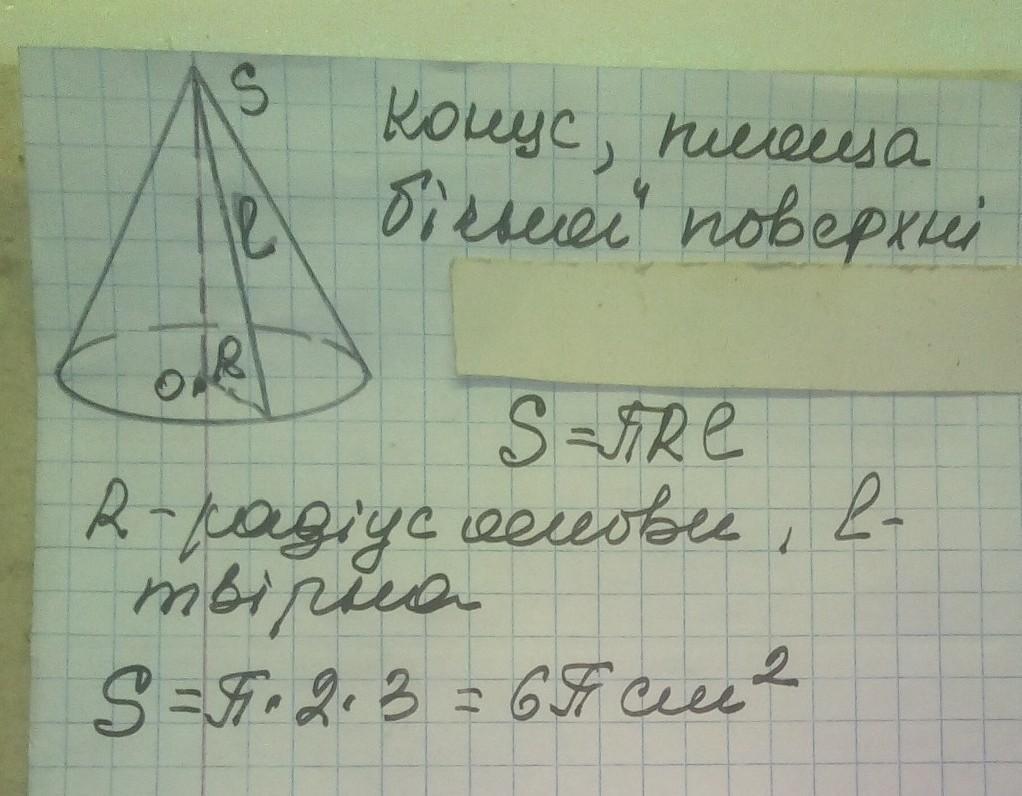 S
конус, площа
бічної поверхні
l
R
O
S = πRl
R - радіус основи, l -
твірна
S = π · 2 · 3 = 6π см²